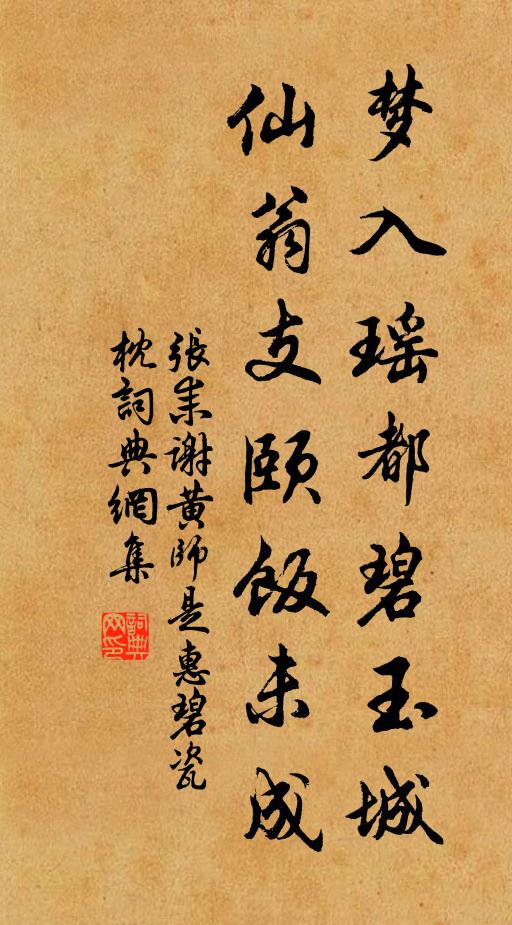 梦入瑶都碧玉城
仙翁支颐饭未成
張耒謝黄師是惠碧瓷
枕詞典網集
詞典
网印